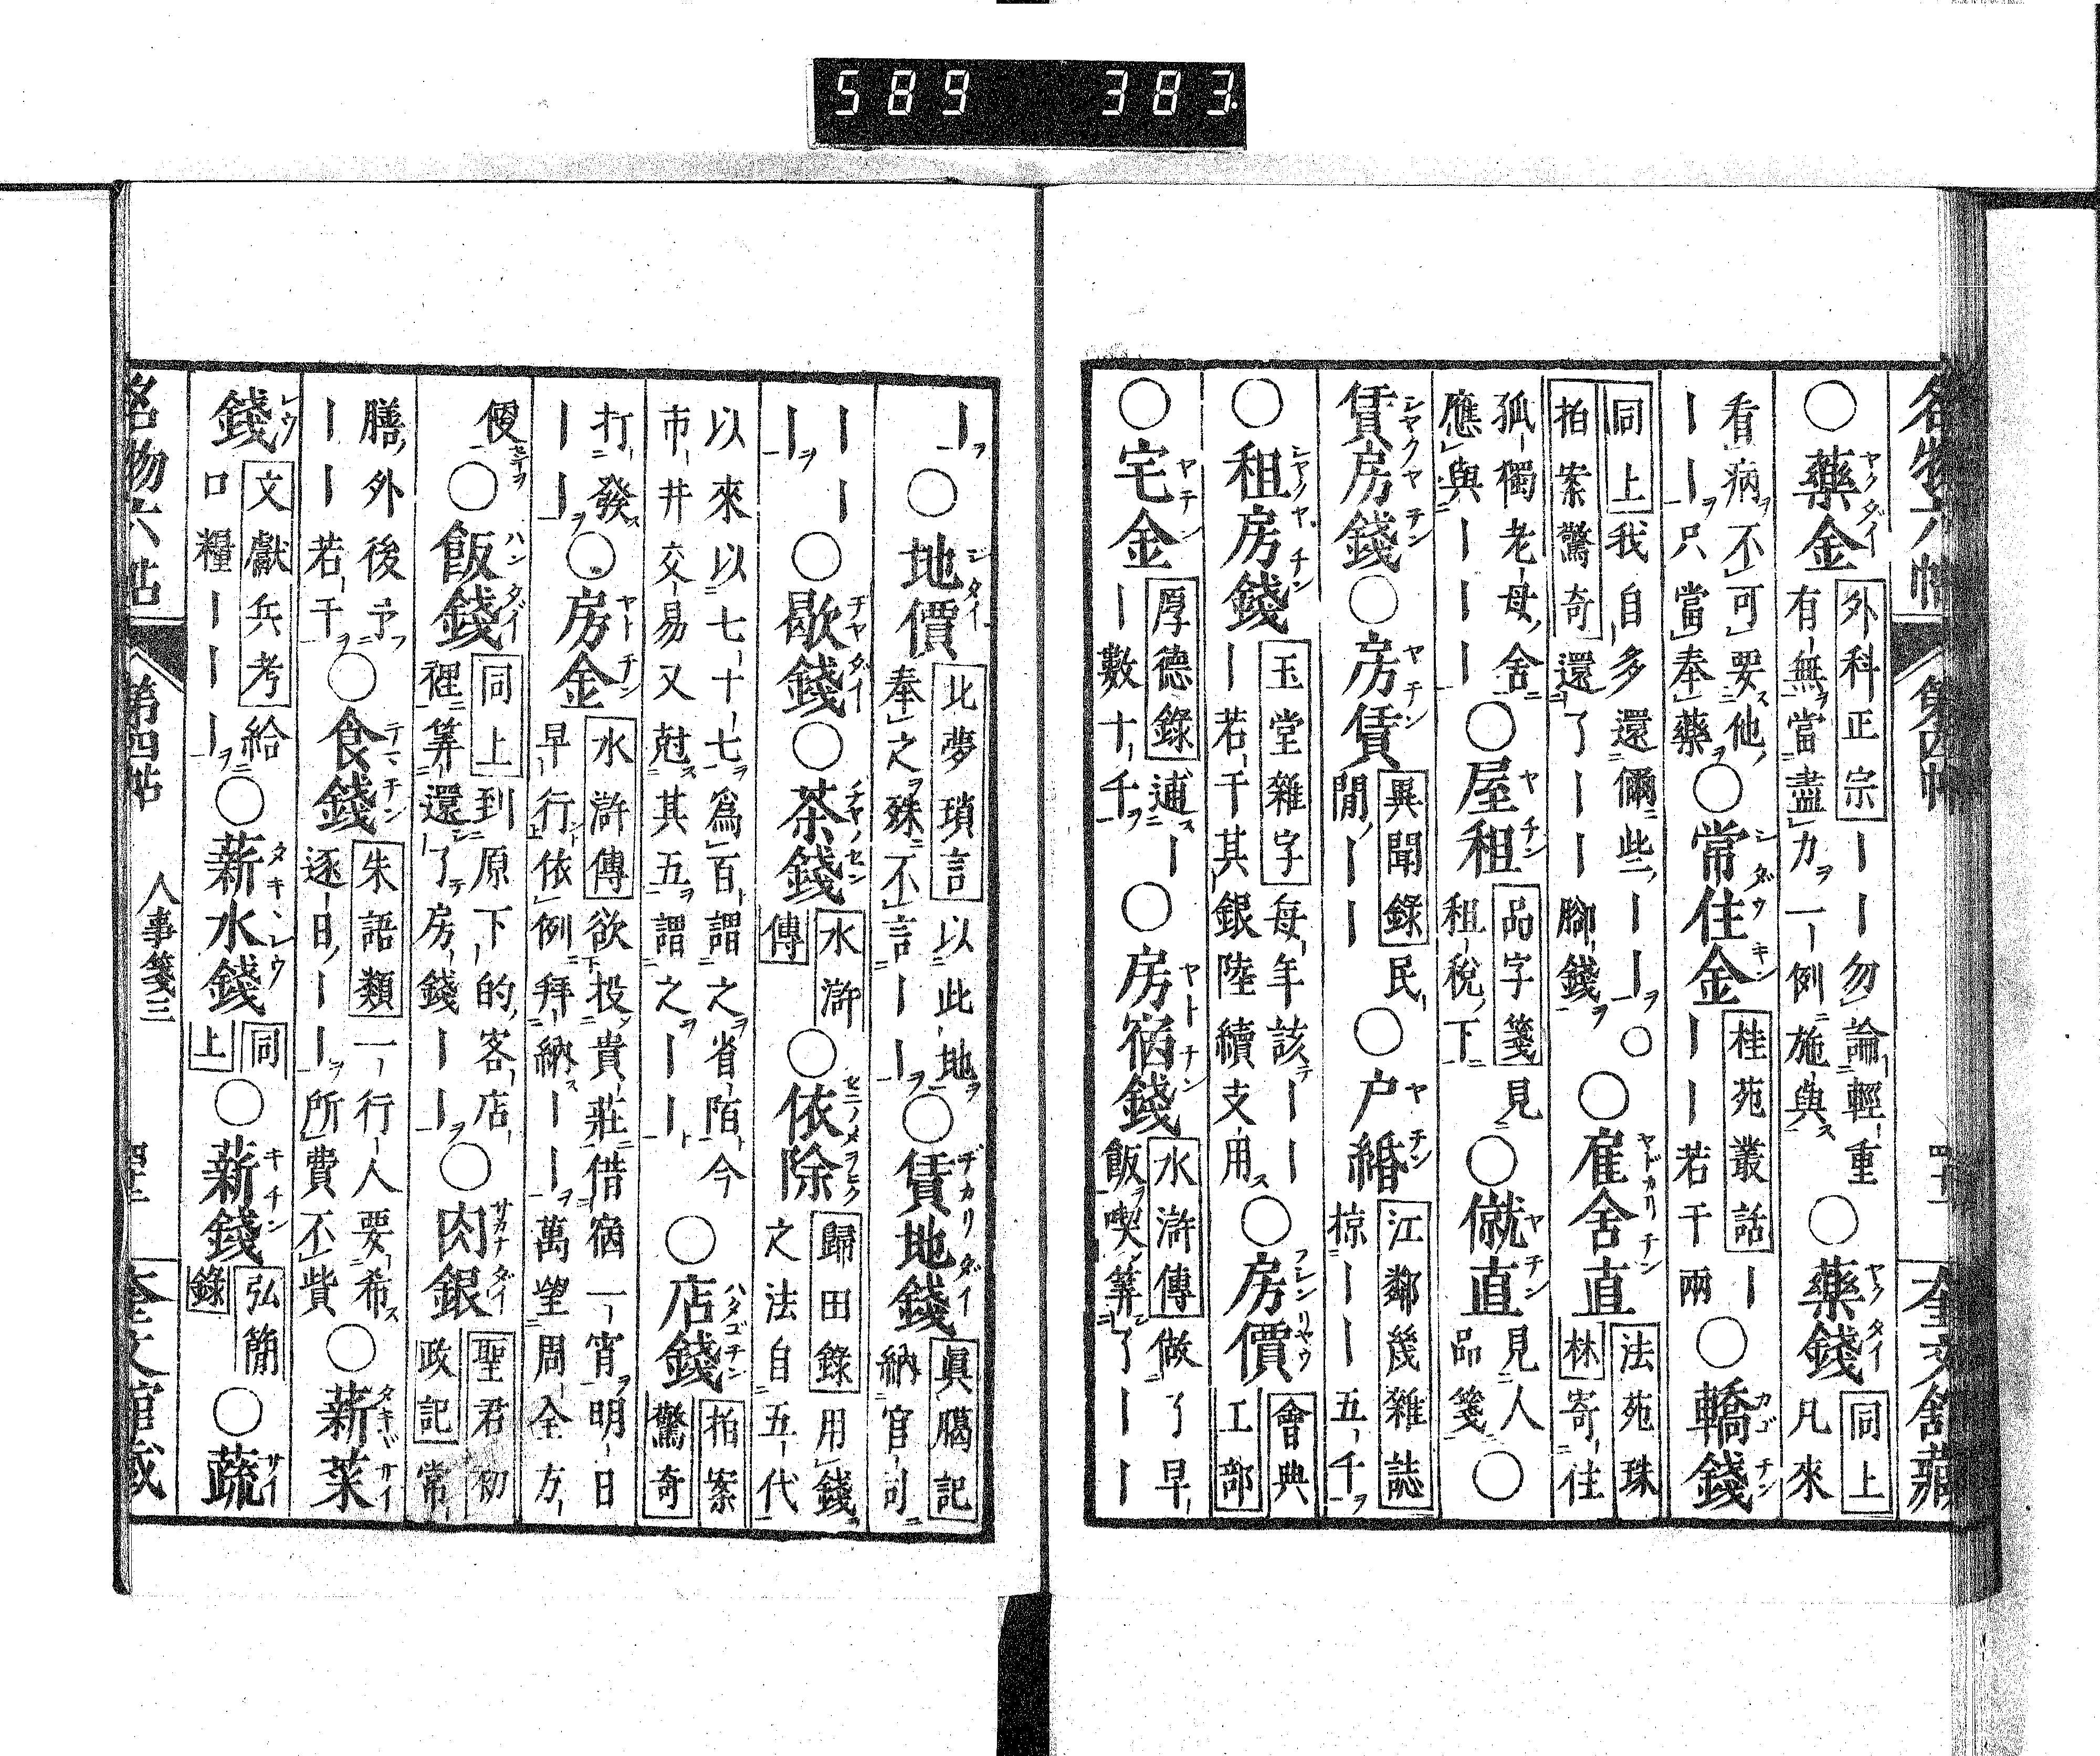 589 383
名物六帖 第四帖 四十二 奎文館藏
○藥金ヤクダイ 外科正宗 ｜｜勿論輕重有無當盡力一例施與 ○藥錢ヤクタイ 同上 凡來
看病不可要他｜｜只當奉藥 ○常住金シダウキン 桂苑叢話 ｜｜｜若干兩 ○轎錢カゴチン
同上 我自多還儞些｜｜○ 拍案驚奇 還了｜｜腳錢 ○雇舍直ヤドカリチン 法苑珠林 寄住
孤獨老母舍應與｜｜｜ ○屋租ヤチン 品字箋 見租稅下 ○僦直ヤチン 見人品箋 ○
賃房錢シヤクヤチン ○房賃ヤチン 異聞錄 民間｜｜ ○戶緡ヤチン 江鄰幾雜誌 掠｜｜五千
○租房錢シヤクヤチン 玉堂雜字 每年該｜｜｜若干其銀陸續支用 ○房價フシンリヤウ 會典工部
○宅金ヤチン 厚德錄 逋｜｜數十千 ○房宿錢ヤトチン 水滸傳 做了早飯喫筭了｜｜
｜ ○地價ジタイ 北夢瑣言 以此地奉之殊不言｜｜ ○賃地錢ヂカリダイ 眞臘記 納官司
｜｜｜ ○歇錢チヤダイ ○茶錢チヤノセン 水滸傳 ○依除セニノメヲヒク 歸田錄 用錢之法自五代
以來以七十七爲百謂之省陌今市井交易又尅其五謂之｜｜ ○店錢ハタゴチン 拍案驚奇
打發｜｜ ○房金ヤーチン 水滸傳 欲投貴莊借宿一宵明日早行依例拜納｜｜萬望周全方
便 ○飯錢ハンダイ 同上 到原下的客店裡筭還了房錢｜｜ ○肉銀サカナダイ 聖君初政記 常
膳外後予｜｜若干 ○食錢テマチン 朱語類 一行人要希逐日｜｜所費不貲 ○薪菜タキヾサイ
錢レウ 文獻兵考 給口糧｜｜｜ ○薪水錢タキヽレウ 同上 ○薪錢キチン 弘簡錄 ○蔬サイ
名物六帖 第四帖 人事箋三 奎文館藏